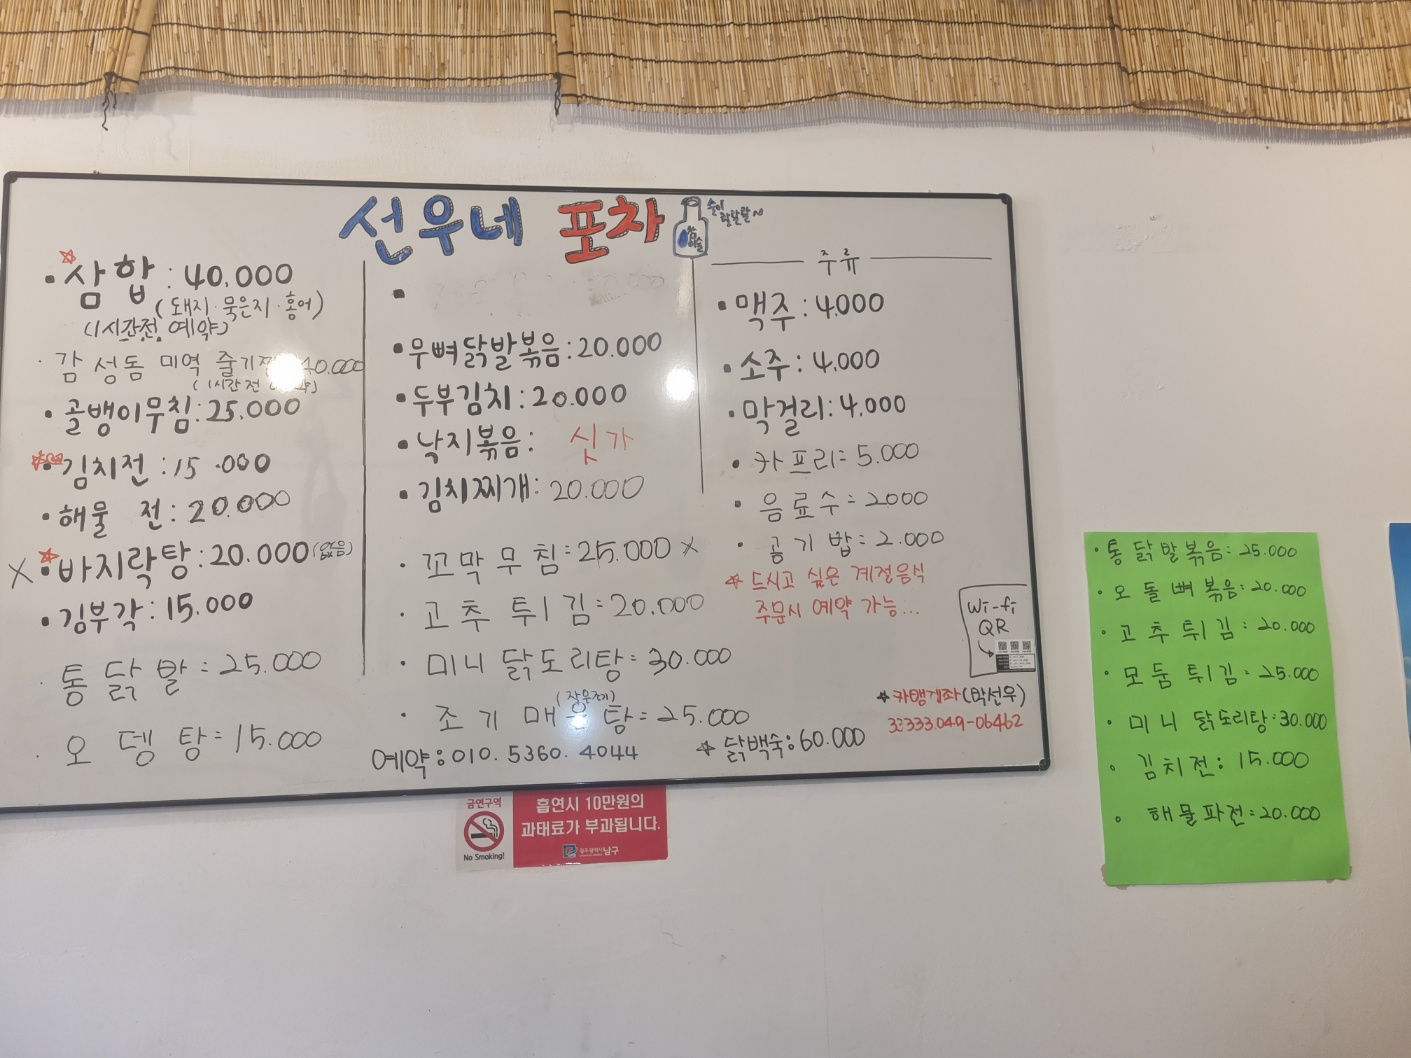 선우네 포차
술이 랄랄랄~
참이슬
• 삼합 : 40,000
(돼지·묵은지·홍어)
(1시간전 예약)
· 감성돔 미역 줄기 40.000
(1시간전
• 골뱅이무침 : 25.000
• 김치전 : 15.000
• 해물 전 : 20.000
X • 바지락탕 : 20.000 (없음)
• 김부각 : 15.000
· 통닭발 : 25.000
· 오뎅탕 : 15.000
• 무뼈닭발볶음 : 20.000
• 두부김치 : 20.000
• 낙지볶음 : 싯가
• 김치찌개 : 20.000
· 꼬막무침 : 25.000 x
· 고추튀김 : 20.000
· 미니 닭도리탕 : 30.000
· 조기매운탕 : 25.000
예약 : 010. 5360. 4044
☆ 닭백숙 : 60.000
주류
• 맥주 : 4.000
• 소주 : 4,000
• 막걸리 : 4.000
• 카프리 : 5.000
• 음료수 : 2000
• 공기밥 : 2.000
☆ 드시고 싶은 계절음식
주문시 예약 가능...
Wi-fi
QR
☆ 카뱅계좌(박선우)
3333.049-06462
금연구역
No Smoking!
흡연시 10만원의
과태료가 부과됩니다.
광주광역시남구
• 통닭발볶음 : 25.000
• 오돌뼈볶음 : 20.000
• 고추튀김 : 20.000
• 모둠튀김 : 25.000
• 미니 닭도리탕 : 30.000
• 김치전 : 15.000
• 해물파전 : 20.000